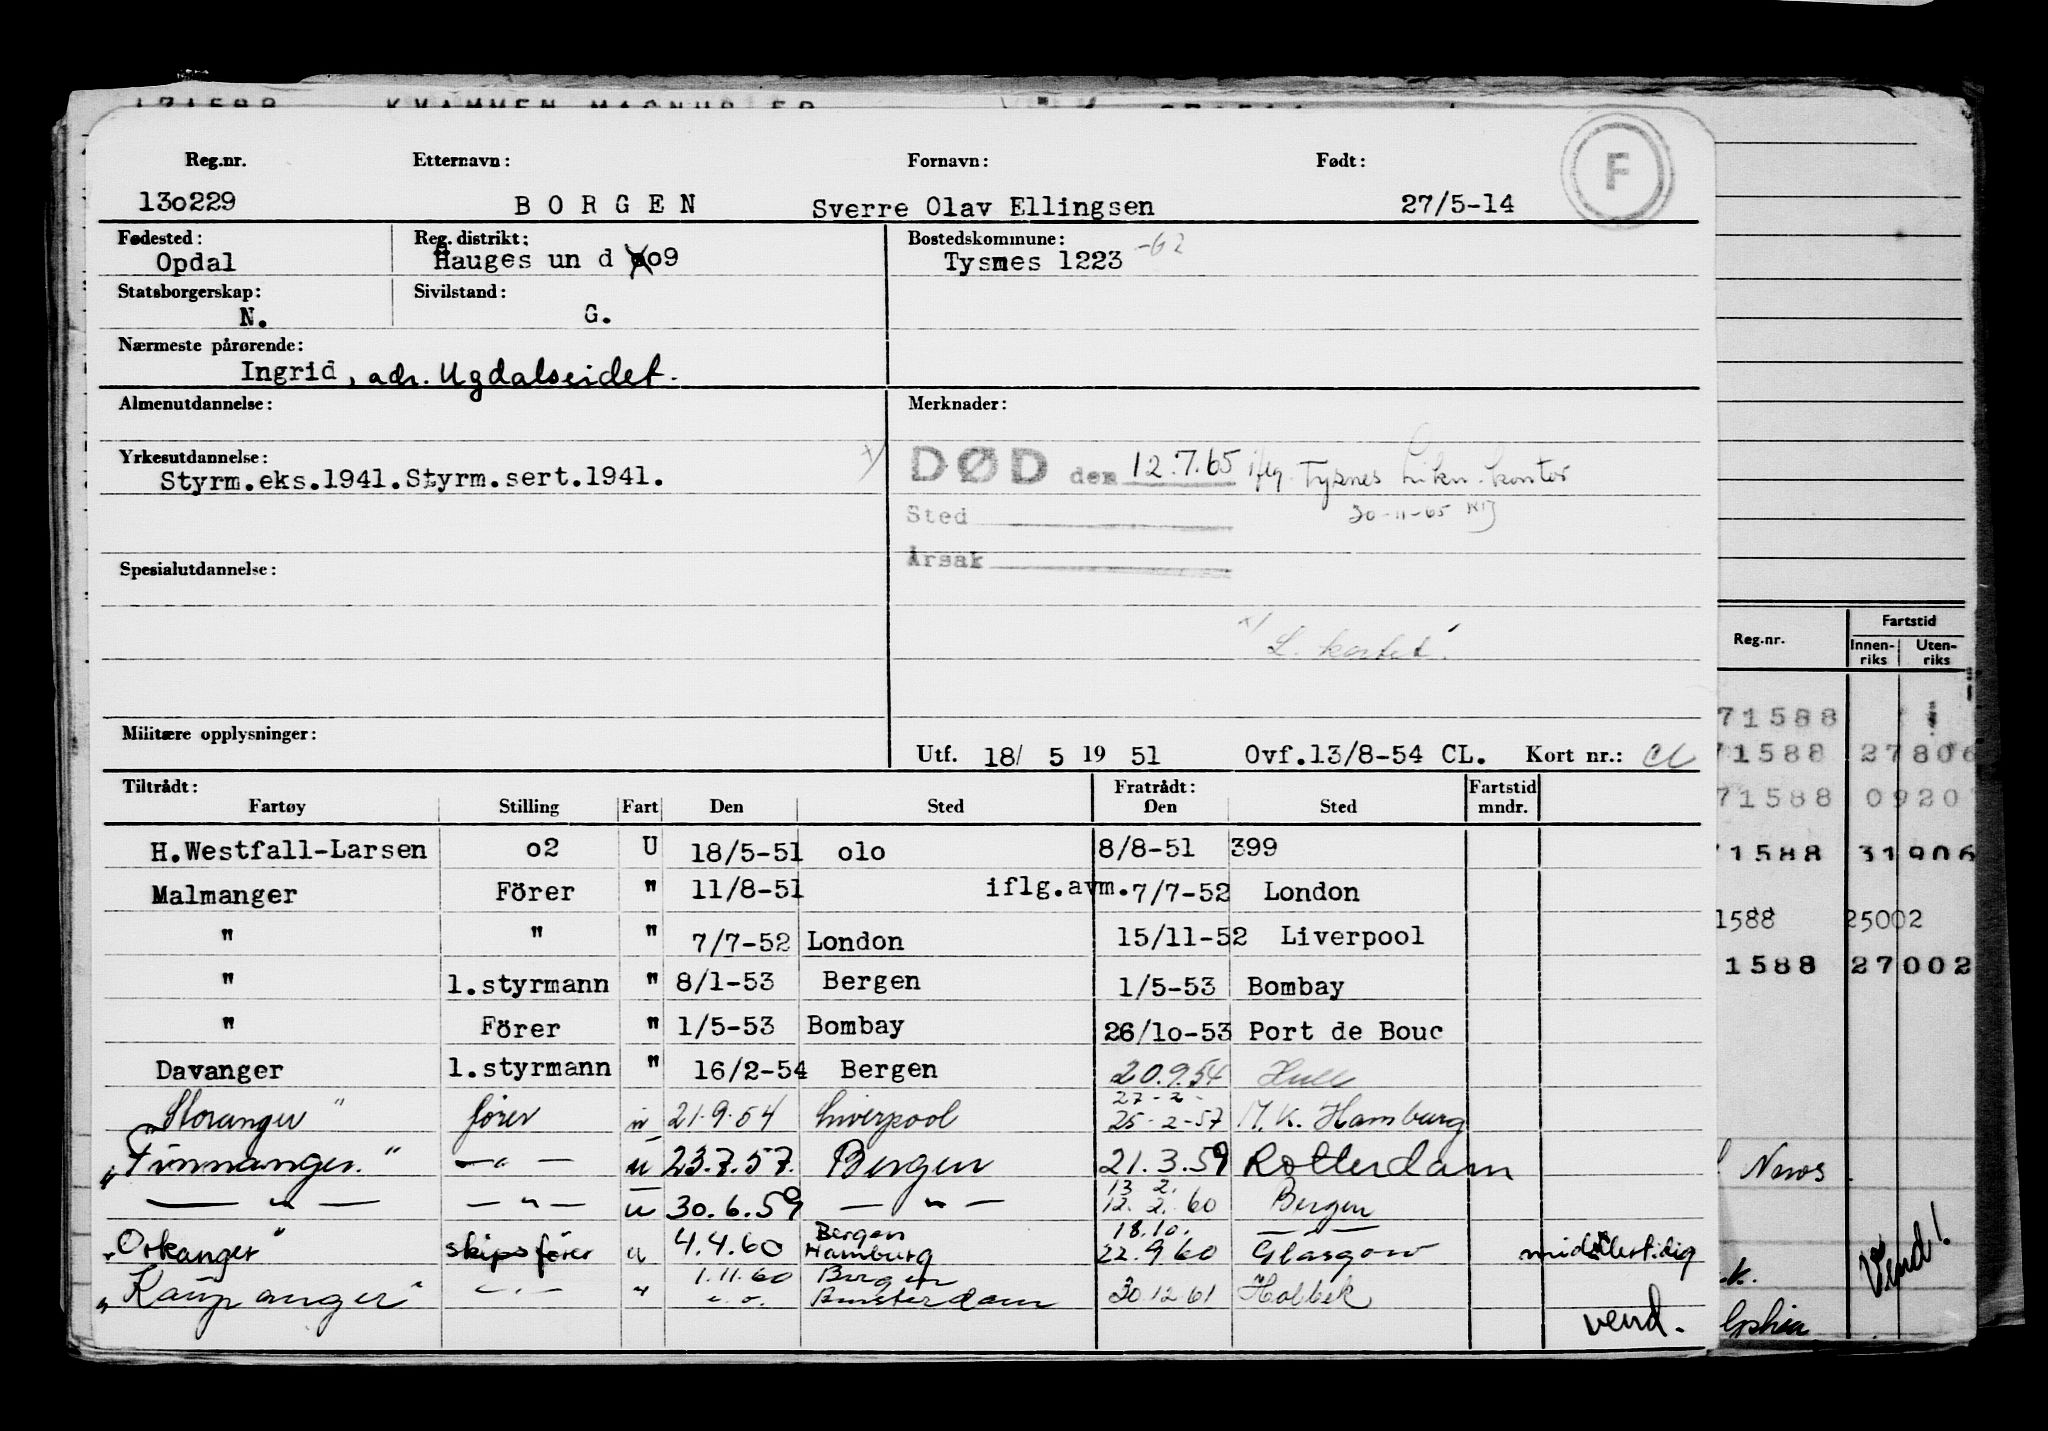 171588 KVAMMEN MAGNUS
Reg.nr. Etternavn: Fornavn: Født: F
130229 BORGEN Sverre Olav Ellingsen 27/5-14
Fødested: Reg. distrikt: Bostedskommune: -62
Opdal Haugesund 09 Tysnes 1223
Statsborgerskap: Sivilstand:
N. G.
Nærmeste pårørende:
Ingrid, adr. Ugdalseidet.
Almenutdannelse: Merknader:
Yrkesutdannelse: x) DØD den 12.7.65 iflg. Tysnes Likn. kontor
Styrm.eks.1941.Styrm.sert.1941.
Sted 30-11-65
Årsak
Spesialutdannelse:
x/ L. kortet!
Militære opplysninger:
Utf. 18/ 5 19 51 Ovf.13/8-54 CL. Kort nr.: CL
Tiltrådt: Fratrådt: Fartstid
Fartøy Stilling Fart Den Sted Den Sted mndr.
H.Westfall-Larsen o2 U 18/5-51 olo 8/8-51 399
Malmanger Förer " 11/8-51 iflg.avm. 7/7-52 London
" " " 7/7-52 London 15/11-52 Liverpool
" 1.styrmann " 8/1-53 Bergen 1/5-53 Bombay
" Förer " 1/5-53 Bombay 26/10-53 Port de Bouc
Davanger 1.styrmann " 16/2-54 Bergen 20.9.54 Hull
27-2-
Storanger " fører u 21.9.54 Liverpool 25-2-57 M.K. Hamburg
"Finnanger." — " — u 23.7.57. Bergen 21.3.59 Rotterdam
13 2.
— " — — " — u 30.6.59 — " — 12.2.60 Bergen
Bergen 18.10. — " —
"Orkanger" skipsfører u 4.4.60 Hamburg 22.9.60 Glasgow midlertidig
1.11.60 Bergen
"Kaupanger" — " — " Amsterdam 30.12.61 Holbek
vend.
Reg.nr. Fartstid
Innen-riks Uten-riks
71588
71588 27806
71588 0920
71588 31906
1588 25002
1588 27002
News
Vend!